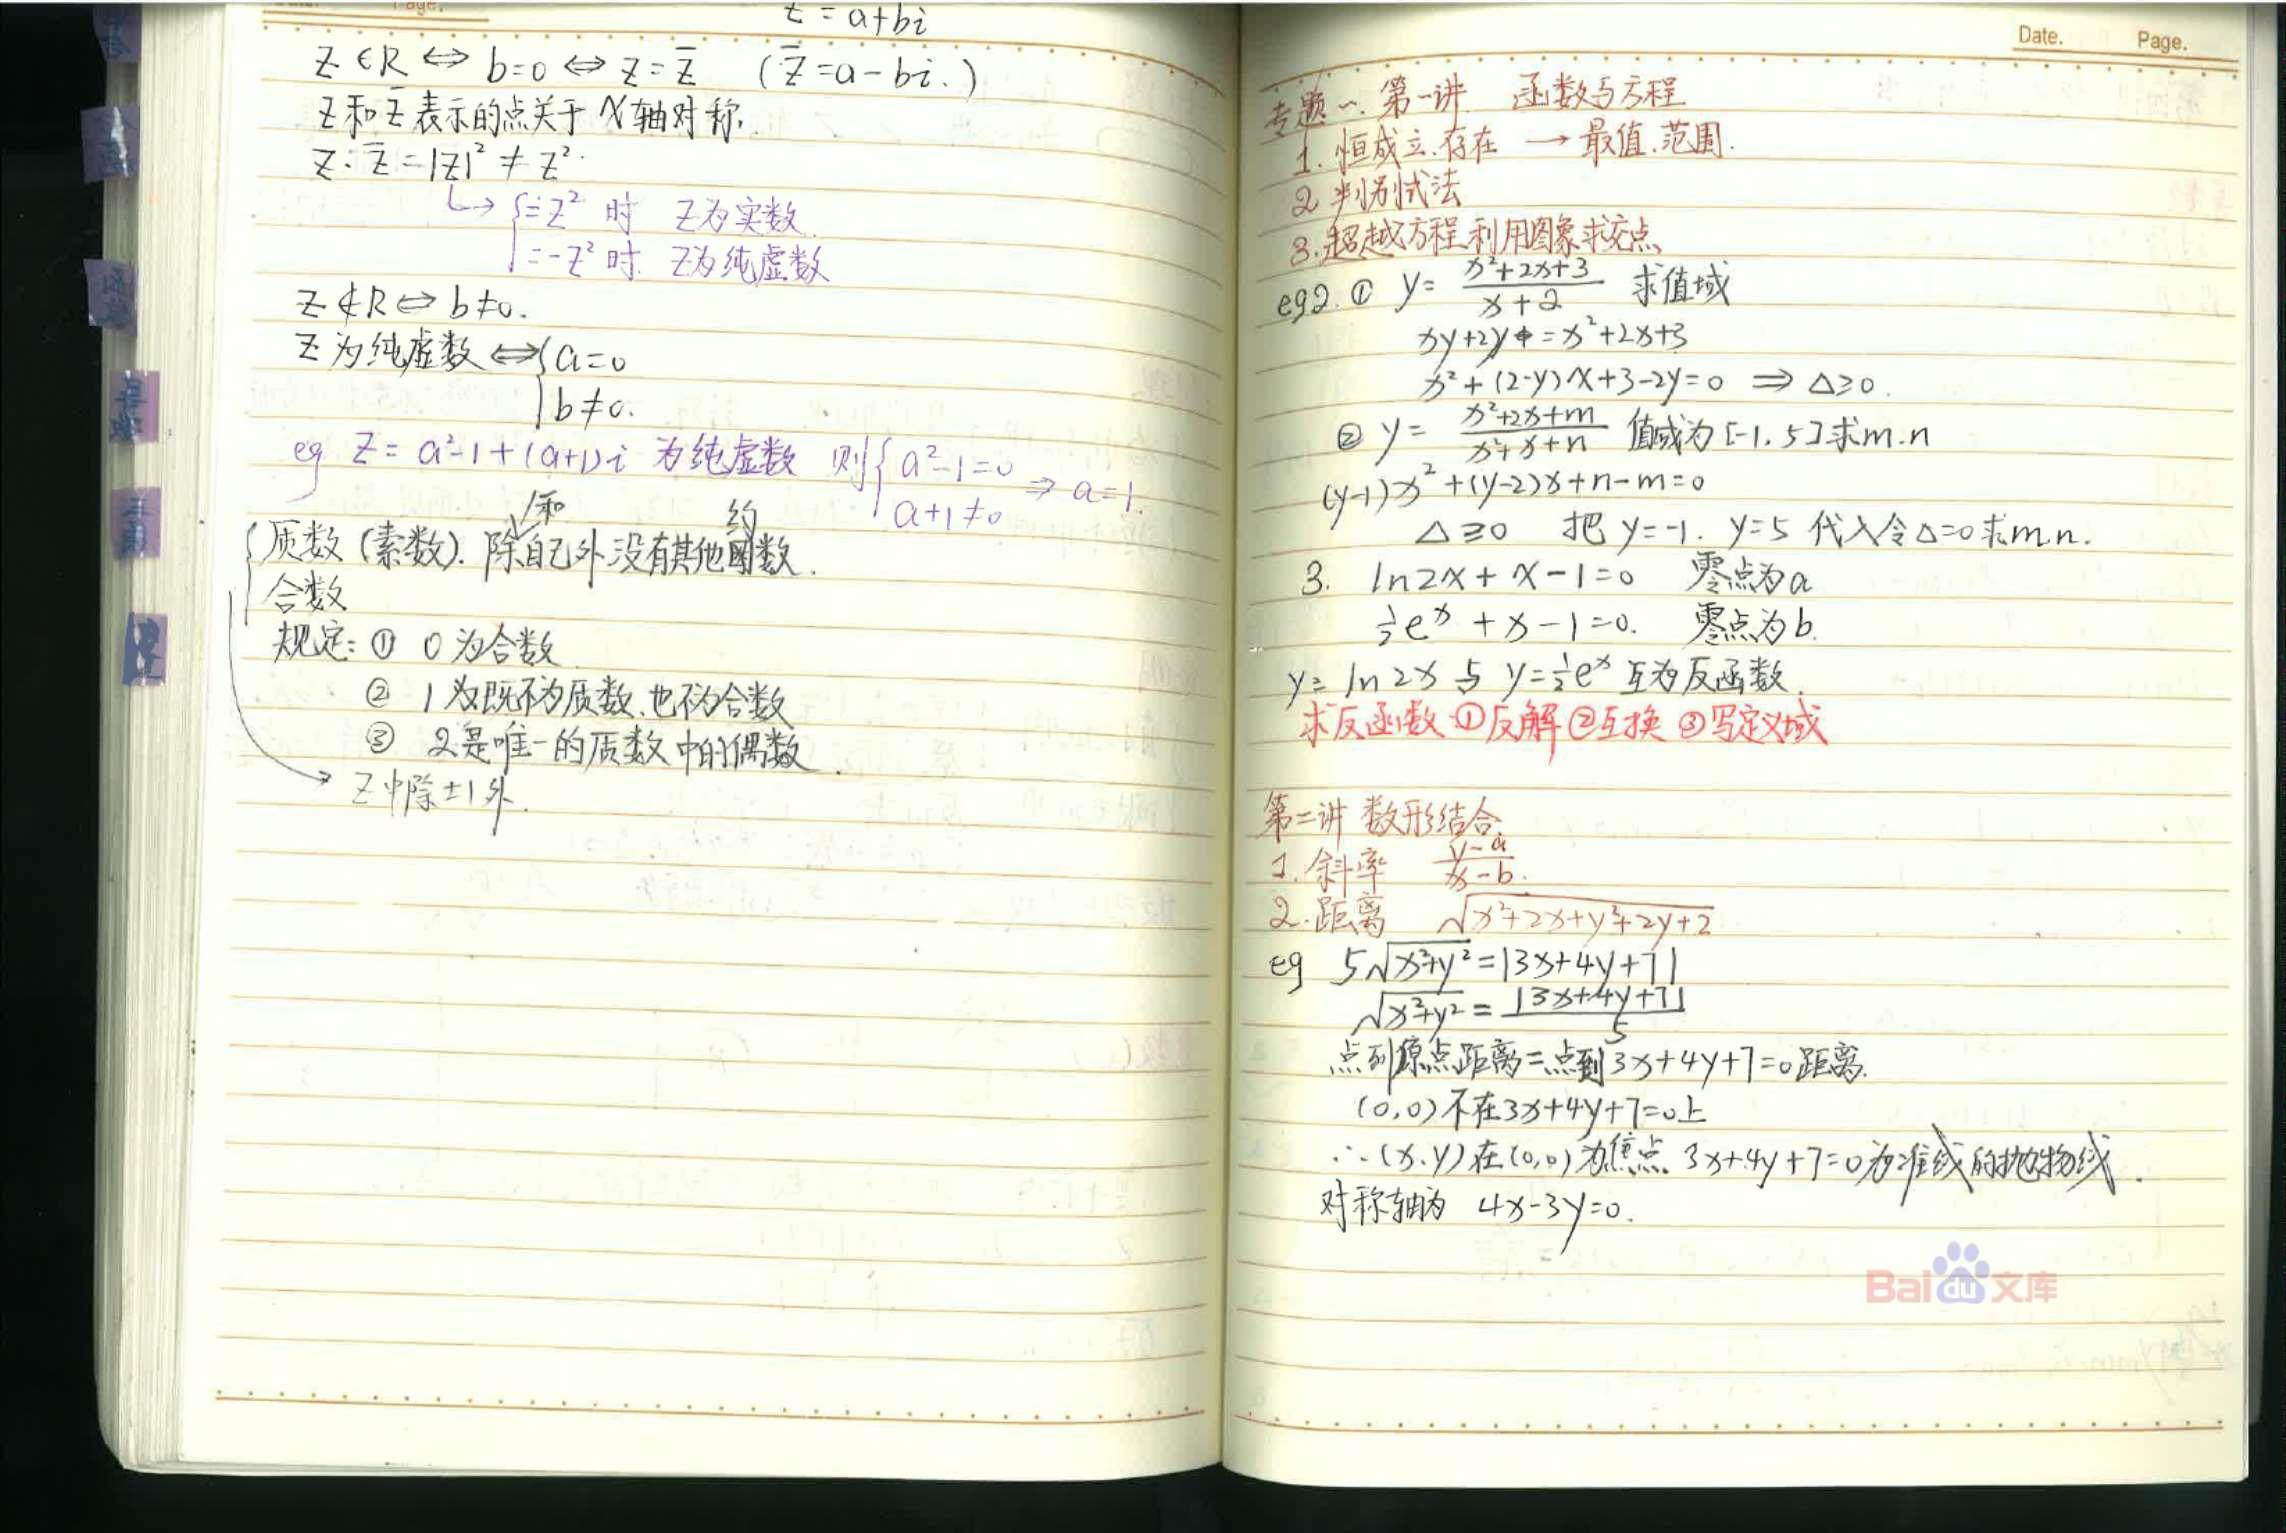 Page.
z = a+bi
z∈R ⇔ b=0 ⇔ z=z̄ (z̄=a-bi.)
z和z̄表示的点关于x轴对称.
z·z̄=|z|²≠z².
↳ {=z² 时 z为实数.
=-z²时. z为纯虚数
z∉R ⇔ b≠0.
z为纯虚数 ⇔ {a=0
b≠0.
eg z = a²-1+(a+1)i 为纯虚数 则{a²-1=0
a+1≠0 ⇒ a=1.
和 约
{质数(素数). 除自己外没有其他数.
合数
规定: ① 0为合数.
② 1为既不为质数.也不为合数
③ 2是唯一的质数中的偶数.
→ Z中除±1外.
Date. Page.
专题一. 第一讲 函数与方程
1. 恒成立.存在 → 最值.范围.
2 判别式法
3.超越方程利用图象求交点
eg2. ① y= (x²+2x+3)/(x+2) 求值域
xy+2y=x²+2x+3
x²+(2-y)x+3-2y=0 ⇒ Δ≥0.
② y= (x²+2x+m)/(x²+x+n) 值域为[-1,5]求m.n
(y-1)x²+(y-2)x+n-m=0
Δ≥0 把 y=-1. y=5 代入令Δ=0求m.n.
3. ln2x+x-1=0 零点为a
½eˣ+x-1=0. 零点为b.
y= ln2x与 y=½eˣ互为反函数.
求反函数 ①反解②互换 ③写定义域
第二讲 数形结合
1. 斜率 (y-a)/(x-b).
2.距离 √(x²+2x+y²+2y+2)
eg 5√(x²+y²)=|3x+4y+7|
√(x²+y²)=|3x+4y+7|/5
点到原点距离=点到3x+4y+7=0距离.
(0,0)不在3x+4y+7=0上
∴(x.y)在(0,0)为焦点.3x+4y+7=0为准线的抛物线.
对称轴为 4x-3y=0.
Baidu文库